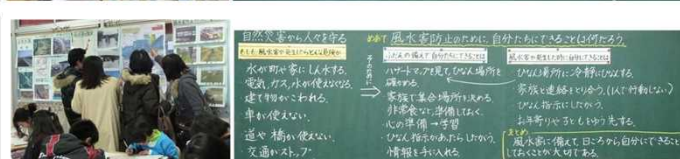 自然災害から人々を守る
もしも風水害が発生したらどんな危険が
水が町や家にしん水する。
電気、ガス、水が使えなくなる。
建て物がこわれる。
車が使えない。
道や橋が使えない。
交通がストップ
そのために
めあて 風水害防止のために、自分たちにできることは何だろう。
ふだんの備えで自分たちにできることは
ハザードマップを見てひなん場所を
確かめる。
家族で集合場所を決める。
非常食など、準備しておく。
心の準備→学習
ひなん指示があったらしたがう。
情報を手に入れる。
風水害が発生した時に自分にできることは
ひなん場所に冷静にひなんする。
家族と連絡をとり合う。(1人で行動しない)
ひなん指示にしたがう。
お年寄りや子どもをゆう先する。
まとめ
風水害に備えて、日ごろから自分にできることを
しておくことが大切である。